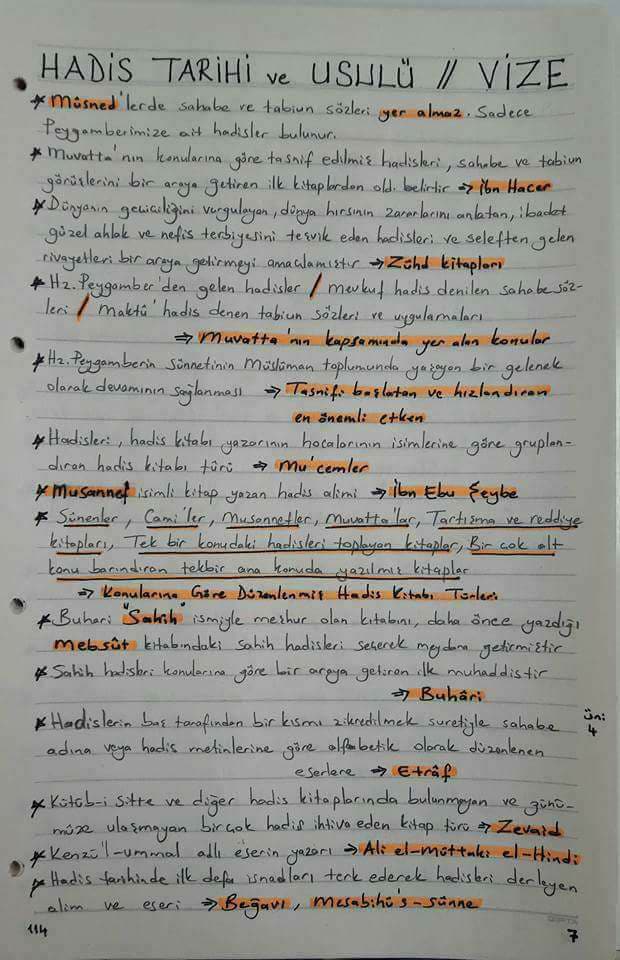 HADİS TARİHİ ve USULÜ // VİZE
* Müsned'lerde sahabe ve tabiun sözleri yer almaz. Sadece
Peygamberimize ait hadisler bulunur.
* Muvatta'nın konularına göre tasnif edilmiş hadisleri, sahabe ve tabiun
görüşlerini bir araya getiren ilk kitaplardan old. belirtir ⇒ İbn Hacer
* Dünyanın geçiciliğini vurgulayan, dünya hırsının zararlarını anlatan, ibadet
güzel ahlak ve nefis terbiyesini teşvik eden hadisleri ve seleften gelen
rivayetleri bir araya getirmeyi amaçlamıştır ⇒ Zühd kitapları
* Hz. Peygamber'den gelen hadisler / mevkuf hadis denilen sahabe söz-
leri / maktû' hadis denen tabiun sözleri ve uygulamaları
⇒ Muvatta'nın kapsamında yer alan konular
* Hz. Peygamberin sünnetinin Müslüman toplumunda yaşayan bir gelenek
olarak devamının sağlanması ⇒ Tasnifi başlatan ve hızlandıran
en önemli etken
* Hadisleri, hadis kitabı yazarının hocalarının isimlerine göre gruplan-
dıran hadis kitabı türü ⇒ Mu'cemler
* Musannef isimli kitap yazan hadis alimi ⇒ İbn Ebu Şeybe
* Sünenler, Cami'ler, Musannefler, Muvatta'lar, Tartışma ve reddiye
kitapları, Tek bir konudaki hadisleri toplayan kitaplar, Bir çok alt
konu barındıran tekbir ana konuda yazılmış kitaplar
⇒ Konularına Göre Düzenlenmiş Hadis Kitabı Türleri
* Buhari "Sahih" ismiyle meşhur olan kitabını, daha önce yazdığı
Mebsût kitabındaki sahih hadisleri seçerek meydana getirmiştir
* Sahih hadisleri konularına göre bir araya getiren ilk muhaddistir
⇒ Buhâri
* Hadislerin baş tarafından bir kısmı zikredilmek suretiyle sahabe
adına veya hadis metinlerine göre alfabetik olarak düzenlenen
eserlere ⇒ Etrâf
Üni:
4
* Kütüb-i Sitte ve diğer hadis kitaplarında bulunmayan ve günü-
müze ulaşmayan birçok hadis ihtiva eden kitap türü ⇒ Zevaid
* Kenzü'l-ummal adlı eserin yazarı ⇒ Ali el-Müttaki el-Hindi
* Hadis tarihinde ilk defa isnadları terk ederek hadisleri derleyen
alim ve eseri ⇒ Beğavi, Mesabihü's-sünne
114
7